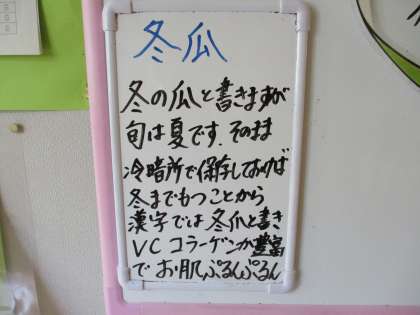 冬瓜
冬の瓜と書きますが
旬は夏です。そのまま
冷暗所で保存しておけば
冬までもつことから
漢字では冬瓜と書き
VCコラーゲンが豊富
でお肌ぷるんぷるん